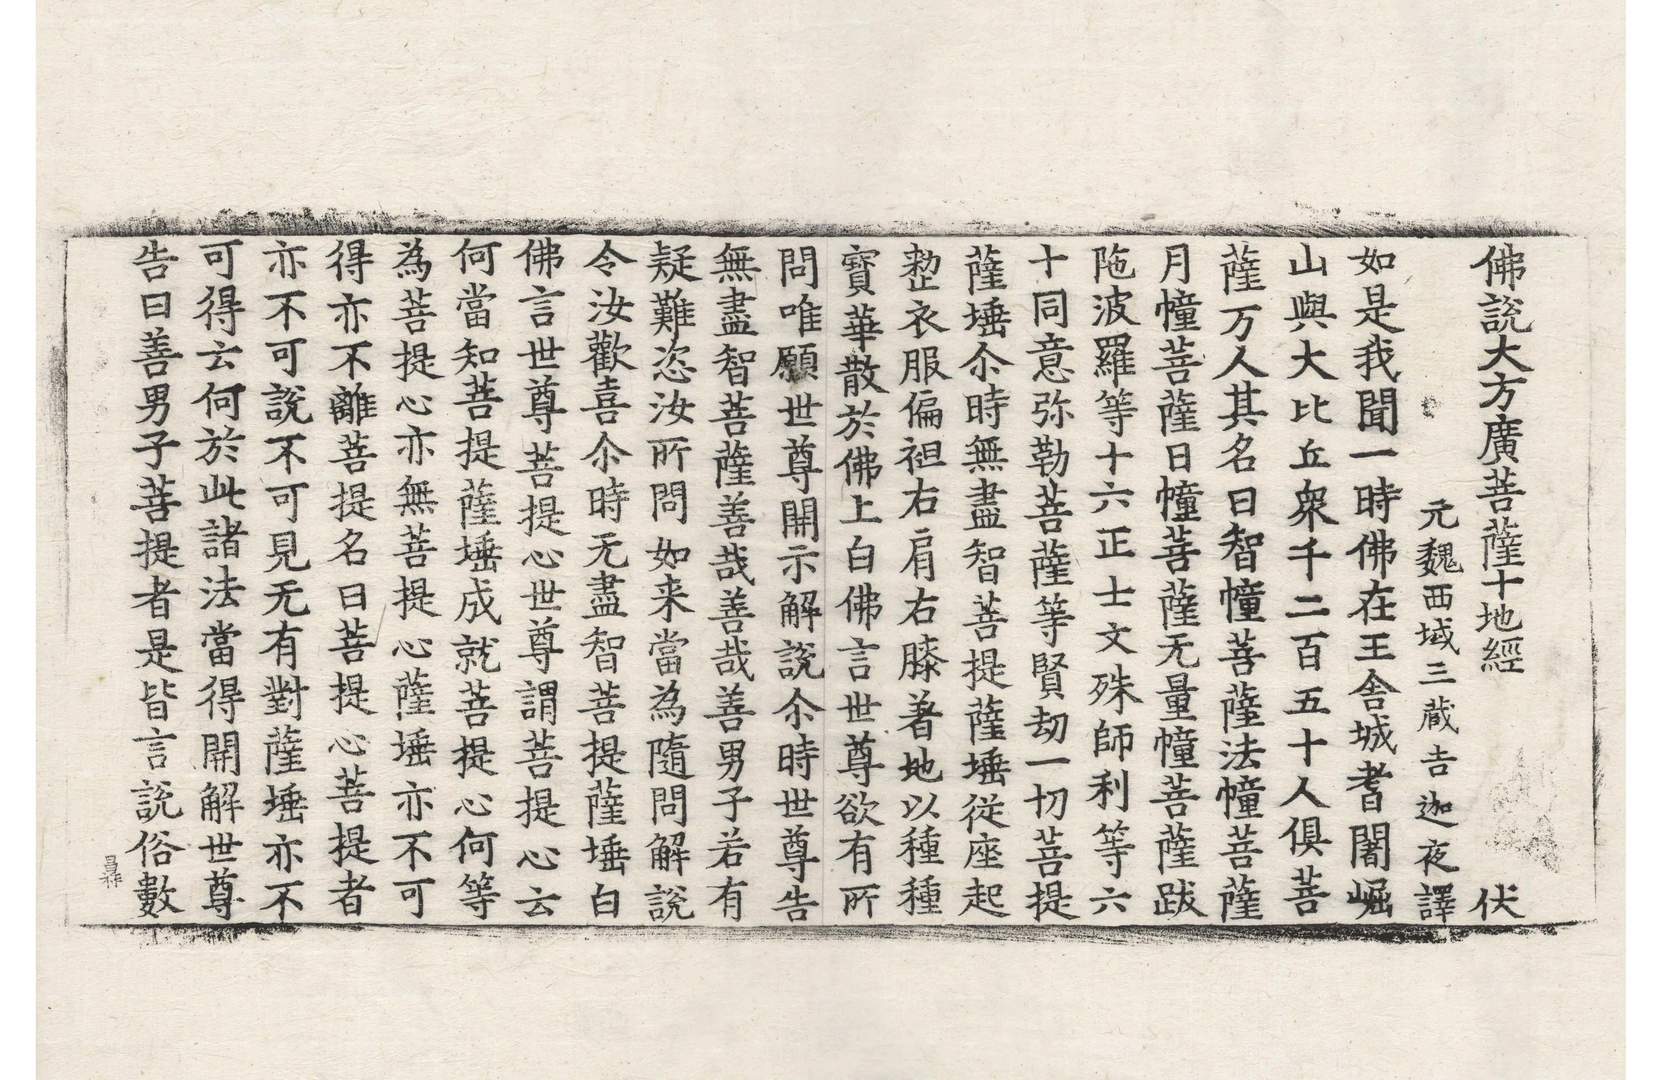 佛說大方廣菩薩十地經 伏
元魏西域三蔵吉迦夜譯
如是我聞一時佛在王舍城耆闍崛
山與大比丘衆千二百五十人俱菩
薩万人其名曰智幢菩薩法幢菩薩
月幢菩薩日幢菩薩无量幢菩薩跋
陁波羅等十六正士文殊師利等六
十同意弥勒菩薩等賢劫一切菩提
薩埵尒時無盡智菩提薩埵從座起
整衣服偏袒右肩右膝著地以種種
寶華散於佛上白佛言世尊欲有所
問唯願世尊開示解說尒時世尊告
無盡智菩薩善哉善哉善男子若有
疑難恣汝所問如来當為隨問解說
令汝歡喜尒時无盡智菩提薩埵白
佛言世尊菩提心世尊謂菩提心云
何當知菩提薩埵成就菩提心何等
為菩提心亦無菩提心薩埵亦不可
得亦不離菩提名曰菩提心菩提者
亦不可說不可見无有對薩埵亦不
可得云何於此諸法當得開解世尊
告曰善男子菩提者是皆言說俗數